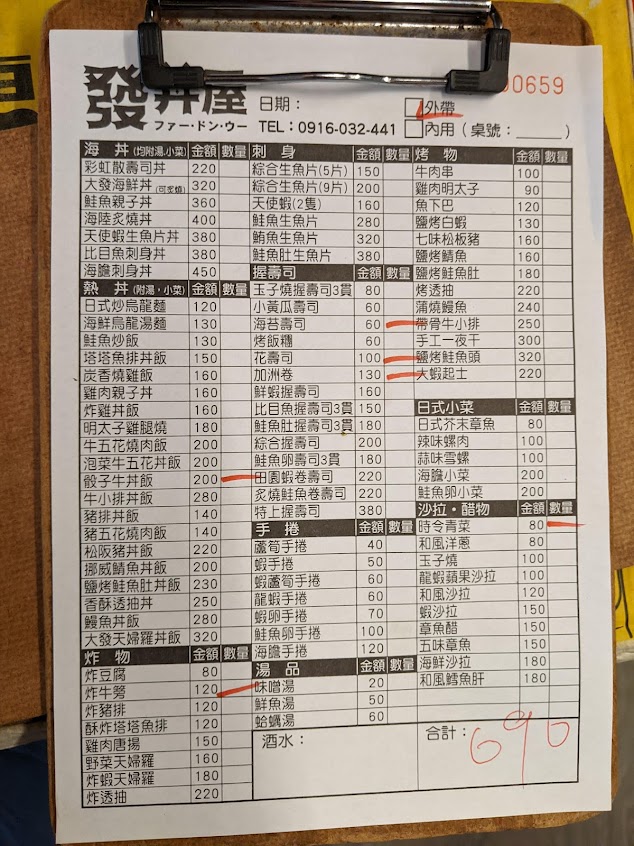 發丼屋
ファー・ドン・ウー
00659
日期：
TEL：0916-032-441
外帶
內用（桌號：_____）
海 丼 (均附湯,小菜) 金額 數量
彩虹散壽司丼 220
大發海鮮丼 (可炙燒) 320
鮭魚親子丼 360
海陸炙燒丼 400
天使蝦生魚片丼 380
比目魚刺身丼 380
海膽刺身丼 450
熱 丼 (附湯,小菜) 金額 數量
日式炒烏龍麵 120
海鮮烏龍湯麵 130
鮭魚炒飯 130
塔塔魚排丼飯 150
炭香燒雞飯 160
雞肉親子丼 160
炸雞丼飯 160
明太子雞腿燒 180
牛五花燒肉飯 200
泡菜牛五花丼飯 200
骰子牛丼飯 200
牛小排丼飯 280
豬排丼飯 140
豬五花燒肉飯 140
松阪豬丼飯 220
挪威鯖魚丼飯 200
鹽烤鮭魚肚丼飯 230
香酥透抽丼 250
鰻魚丼飯 280
大發天婦羅丼飯 320
炸 物 金額 數量
炸豆腐 80
炸牛蒡 120
炸豬排 120
酥炸塔塔魚排 120
雞肉唐揚 150
野菜天婦羅 160
炸蝦天婦羅 180
炸透抽 220
刺 身 金額 數量
綜合生魚片(5片) 150
綜合生魚片(9片) 200
天使蝦(2隻) 160
鮭魚生魚片 280
鮪魚生魚片 320
鮭魚肚生魚片 380
握壽司 金額 數量
玉子燒握壽司3貫 80
小黃瓜壽司 60
海苔壽司 60
烤飯糰 60
花壽司 100
加洲卷 130
鮮蝦握壽司 160
比目魚握壽司3貫 150
鮭魚肚握壽司3貫 180
綜合握壽司 200
鮭魚卵壽司3貫 180
田園蝦卷壽司 220
炙燒鮭魚卷壽司 220
特上握壽司 380
手 捲 金額 數量
蘆筍手捲 40
蝦手捲 50
蝦蘆筍手捲 60
龍蝦手捲 60
蝦卵手捲 70
鮭魚卵手捲 100
海膽手捲 120
湯 品 金額 數量
味噌湯 20
鮮魚湯 50
蛤蠣湯 60
酒水：
烤 物 金額 數量
牛肉串 100
雞肉明太子 90
魚下巴 120
鹽烤白蝦 130
七味松板豬 160
鹽烤鯖魚 160
鹽烤鮭魚肚 180
烤透抽 220
蒲燒鰻魚 240
帶骨牛小排 250
手工一夜干 300
鹽烤鮭魚頭 320
大蝦起士 220
日式小菜 金額 數量
日式芥末章魚 80
辣味螺肉 100
蒜味雪螺 100
海膽小菜 200
鮭魚卵小菜 200
沙拉・醋物 金額 數量
時令青菜 80
和風洋蔥 80
玉子燒 100
龍蝦蘋果沙拉 100
和風沙拉 120
蝦沙拉 150
章魚醋 150
五味章魚 150
海鮮沙拉 180
和風鱈魚肝 180
合計：690